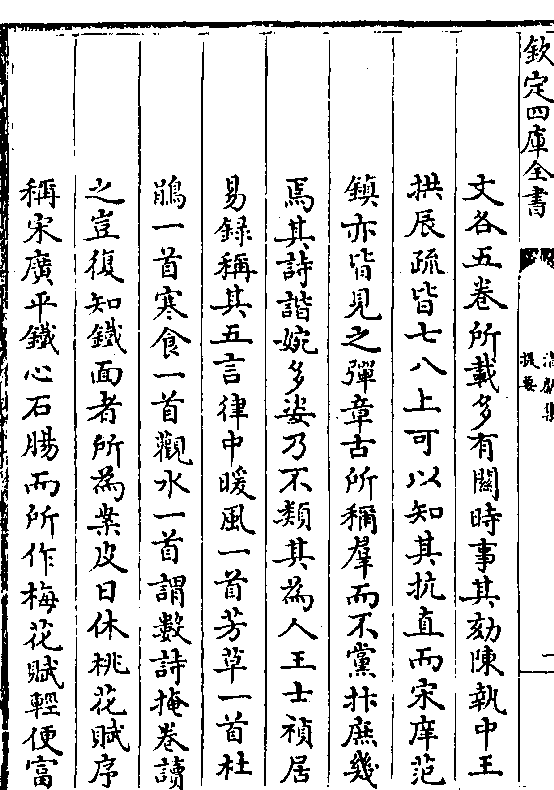 欽定四庫全書
清獻集
提要
一
文各五卷所載多有關時事其劾陳執中王
拱辰疏皆七八上可以知其抗直而宋庠范
鎮亦皆見之彈章古所稱羣而不黨抃庶幾
焉其詩諧婉多姿乃不類其為人王士禎居
易録稱其五言律中暖風一首芳草一首杜
鵑一首寒食一首觀水一首謂數詩掩卷讀
之豈復知鐵面者所為案皮日休桃花賦序
稱宋廣平鐵心石腸而所作梅花賦輕便富